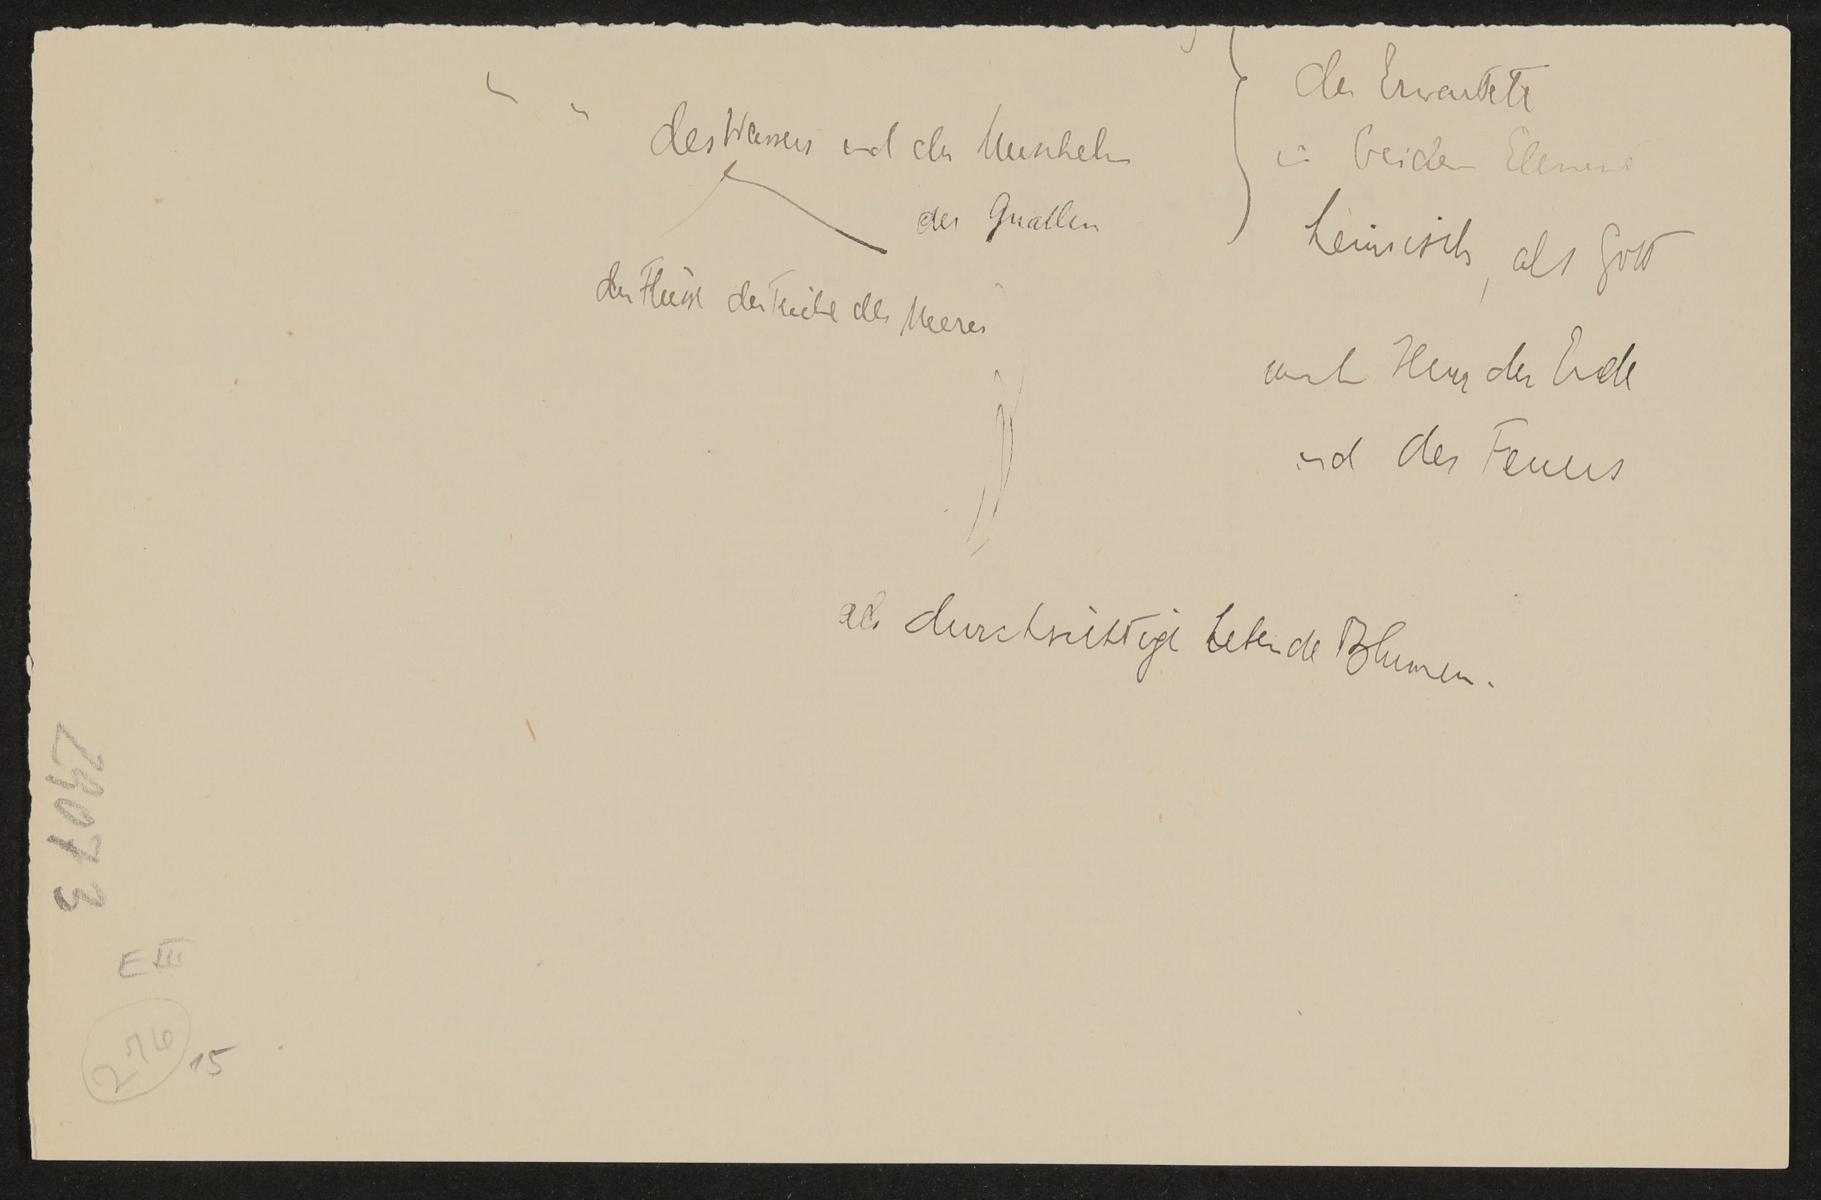 des Wassers und der Muscheln
der Quallen
der Flüsse der Teiche des Meeres
der Erwartete
in beiden Element
heimisch, als Gott
auch Herr der Erde
und des Feuers
als durchsichtige lebende Blumen.
29073
E III
276
15